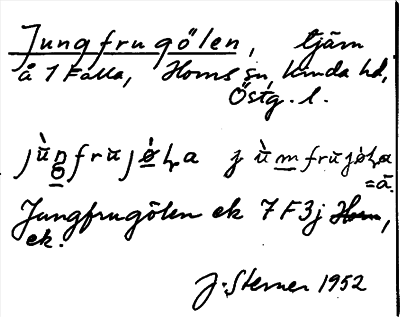 Jungfrugölen, tjärn
å 1 Falla, Horns sn, Kinda hd,
Östg. l.
=a.
Jungfrugölen ek 7F3j Horn,
ek.
J. Sterner 1952